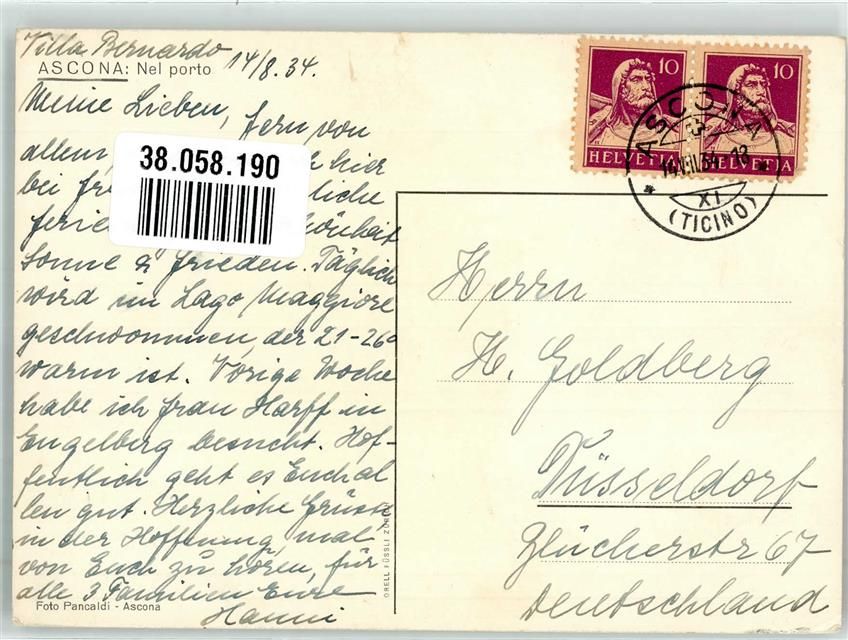 Villa Bernardo
ASCONA: Nel porto 14/8.34.
Meine Lieben, fern von
allem, hier
bei
Sonne & Frieden. Täglich
wird im Lago Maggiore
geschwommen, der 21-26°
warm ist. Vorige Woche
habe ich Frau Harff in
Engelberg besucht. Hof-
fentlich geht es Euch al
len gut. Herzliche Grüsse
in der Hoffnung, mal
von Euch zu hören, für
alle 3 Familien Eure
Hanni
Foto Pancaldi - Ascona
ORELL FÜSSLI ZÜRICH
38.058.190
10 10
HELVETIA HELVETIA
ASCONA
14.VIII.34
XI
(TICINO)
Herrn
H. Goldberg
Düsseldorf
Blücherstr 67
Deutschland